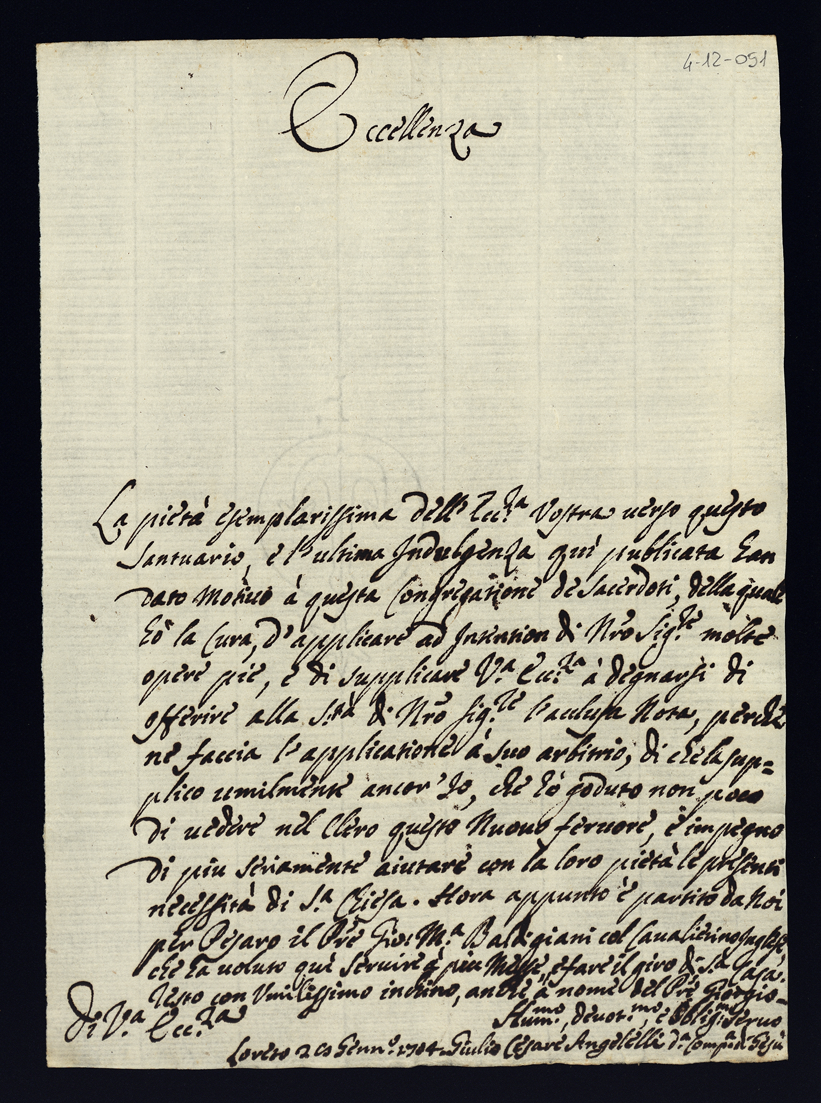 4-12-091
Eccellenza
La pietà esemplarissima dell'Ecc.za Vostra verso questo
Santuario, e l'ultima Indulgenza quì publicata han
dato motivo à questa Congregatione de Sacerdoti, della quale
hò la Cura, d'applicare ad Intention di Nrõ Sig.re molte
opere pie, e di supplicare V.a Ecc.za à degnarsi di
offerire alla S.tà di Nrõ Sig.re l'acclusa Nota, perche
ne faccia l'applicatione à suo arbitrio; di che la sup=
plico umilmente ancor'Io, che hò goduto non poco
di vedere nel Clero questo Nuovo fervore, e impegno
di piu seriamente aiutare con la loro pietà le presenti
necessità di S.a Chiesa. Hora appunto è partito da Noi
per Pesaro il Prẽ Gio: M.a Baldigiani col Cavalierino Inglese
che ha voluto quì servire piu Messe, e fare il giro di S.a Casa.
Resto con Umilissimo inchino, anche à nome del Prẽ Giorgio=
Di V.a Ecc.za
Hum.mo, devot.mo, e oblig.mo Servo
Loreto 20 Genn.o 1704. Giulio Cesare Angelelli d.a Comp.a di Gesù